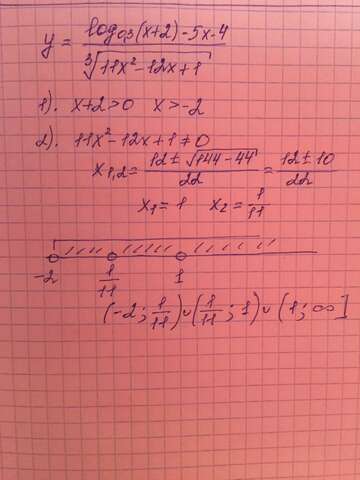 y = log₀,₃(x+2)-5x-4 / ∛(11x²-12x+1)
1). x+2>0 x>-2
2). 11x²-12x+1≠0
x₁,₂= (12±√(144-44))/22 = (12±10)/22
x₁=1 x₂=1/11
-2 1/11 1
(-2; 1/11)∪(1/11; 1)∪(1; ∞]